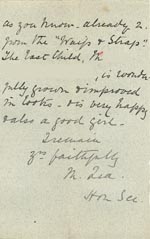 as you know - already 2.
from the "Waifs & Strays".
The East Child, M
, is wonder
fully grown & improved
in looks - & is very happy
& also a good girl -
I remain
yrs faithfully
M.
Hon Sec